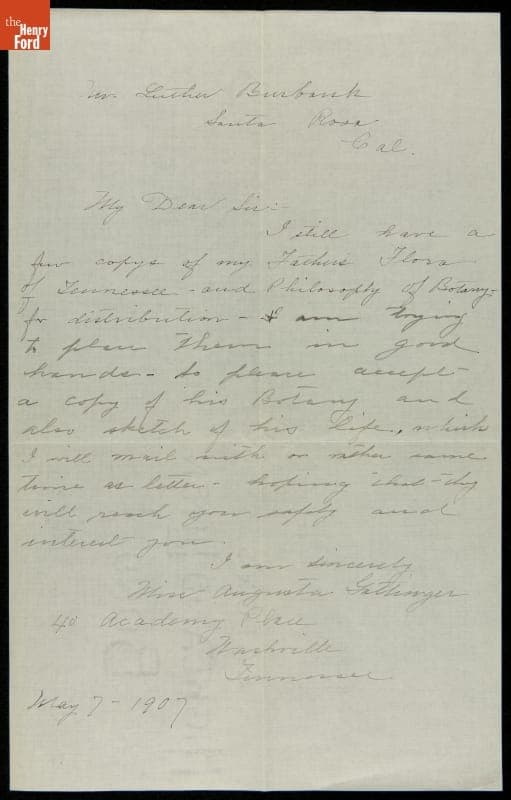 the
Henry
Ford
Mr. Luther Burbank
Santa Rosa
Cal.
My Dear Sir:-
I still have a
few copys of my Fathers Flora
of Tennessee - and Philosophy of Botany-
for distribution - I am trying
to place them in good
hands - so please accept
a copy of his Botany and
also sketch of his life, which
I will mail with or rather same
time as letter - hoping that they
will reach you safely and
interest you.
I am sincerely
Miss Augusta Gattinger
40 Academy Place
Nashville
Tennessee
May 7 - 1907